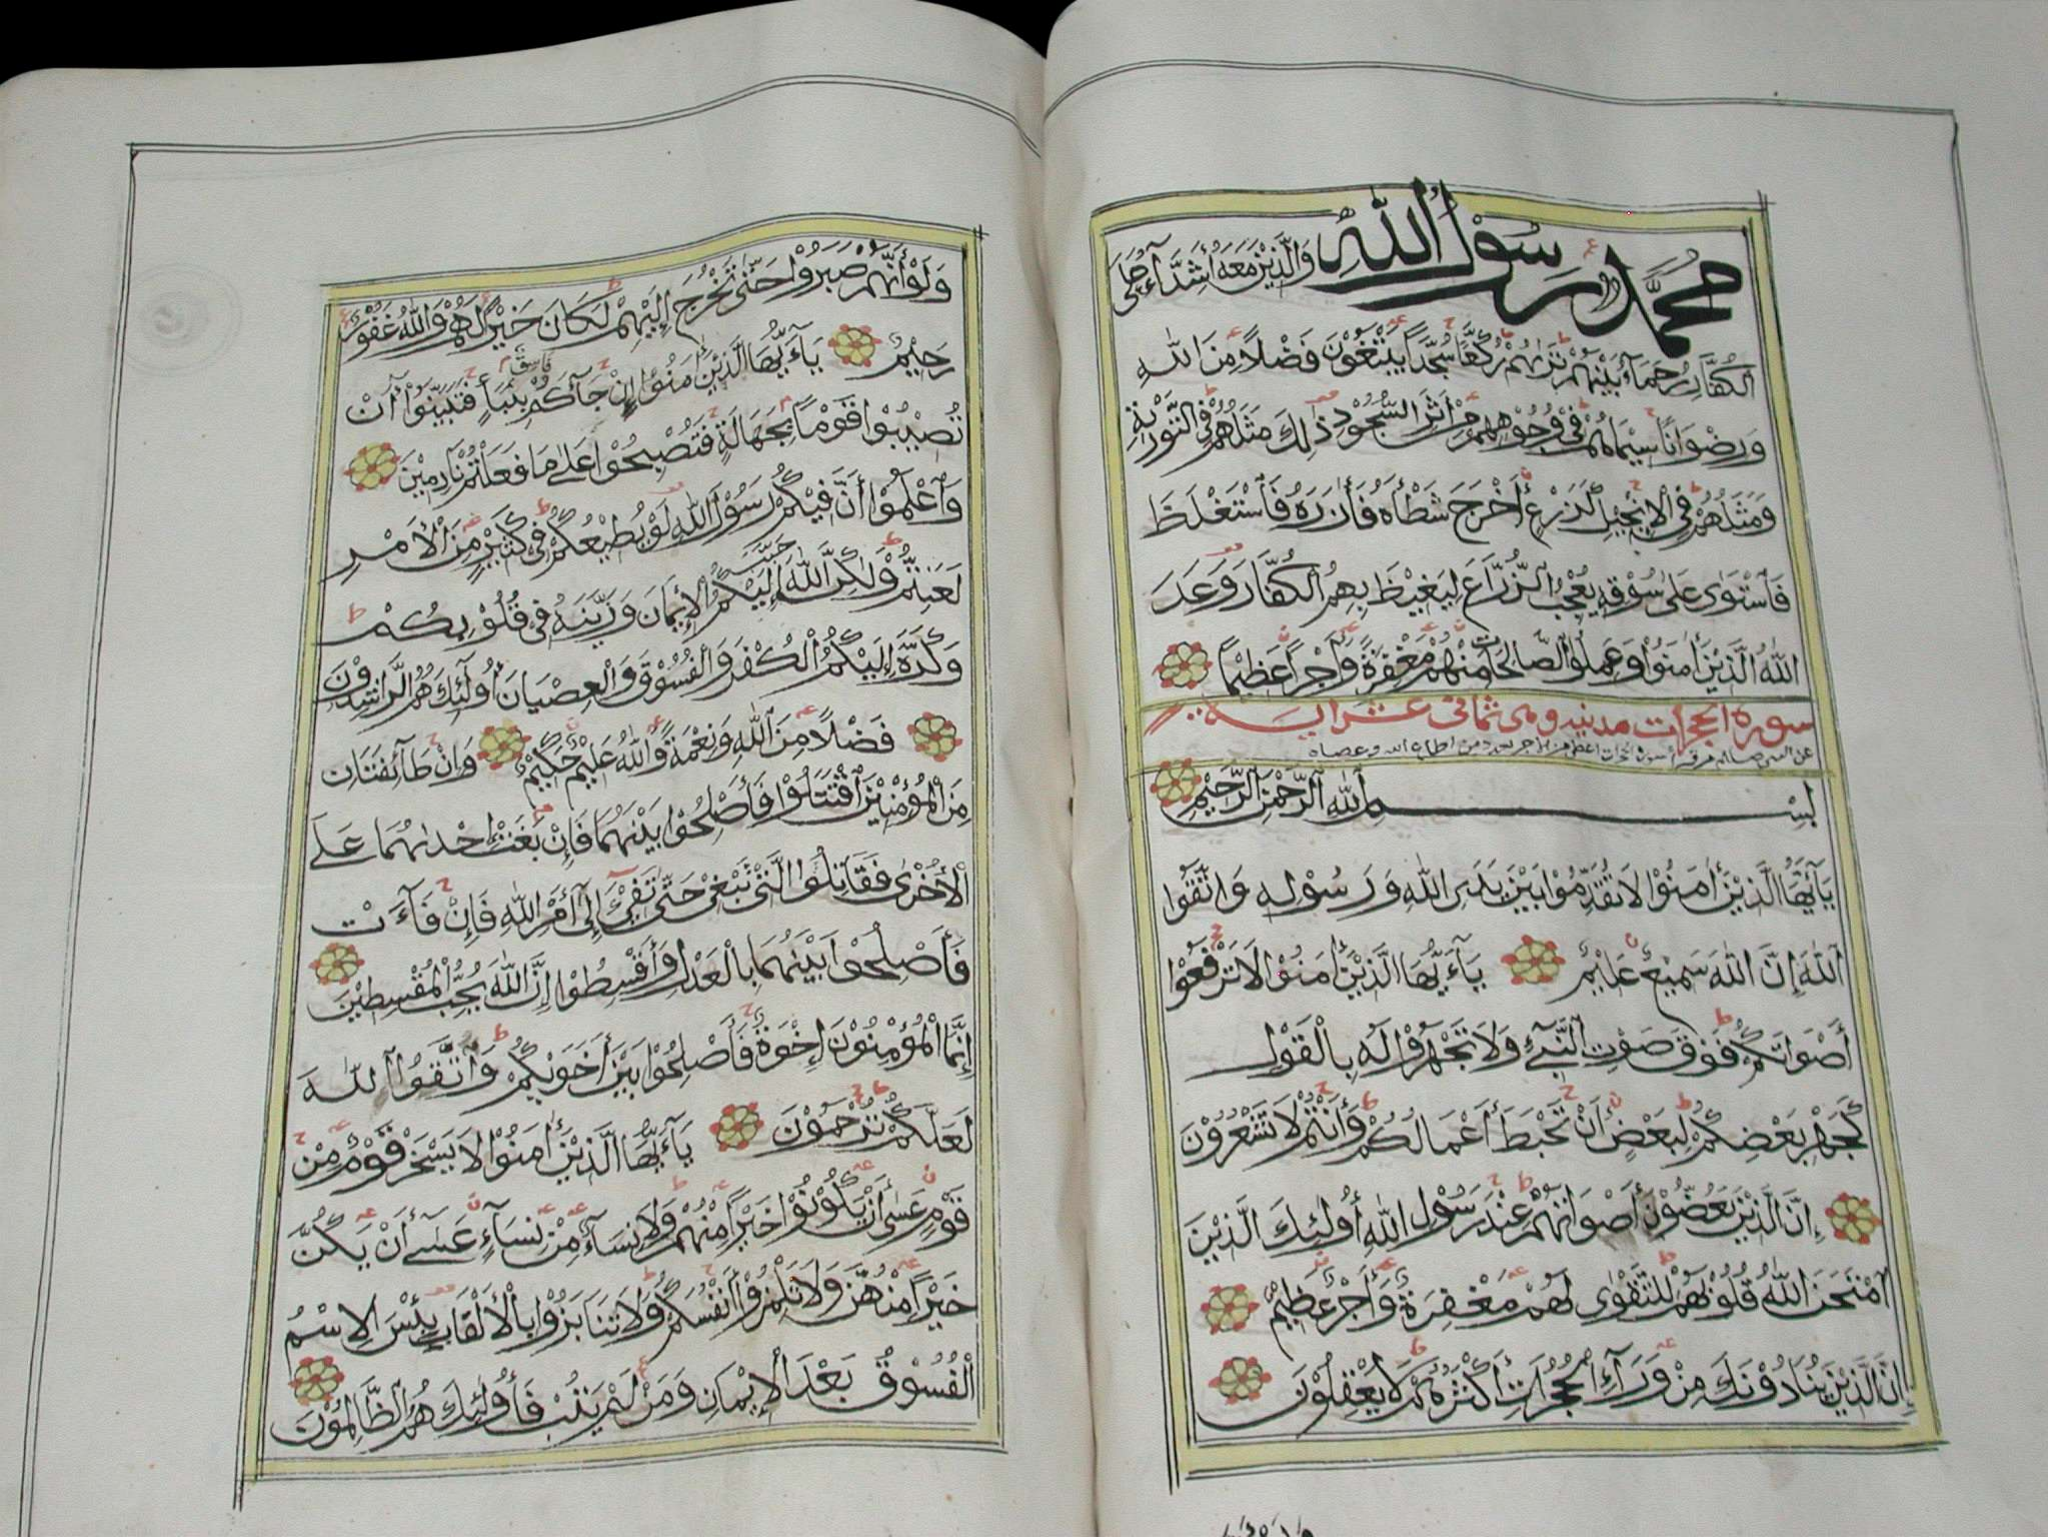 محمد رسول الله وَالَّذِيْنَ مَعَهُ أَشِدَّآءُ عَلَى
الْكُفَّارِ رُحَمَآءُ بَيْنَهُمْ تَرَاهُمْ رُكَّعًا سُجَّدًا يَبْتَغُوْنَ فَضْلًا مِنَ اللهِ
وَرِضْوَانًا سِيْمَاهُمْ فِيْ وُجُوْهِهِمْ مِنْ أَثَرِ السُّجُوْدِ ذٰلِكَ مَثَلُهُمْ فِي التَّوْرٰىةِ
وَمَثَلُهُمْ فِي الْإِنْجِيْلِ كَزَرْعٍ أَخْرَجَ شَطْأَهُ فَأٰزَرَهُ فَاسْتَغْلَظَ
فَاسْتَوٰى عَلٰى سُوْقِهِ يُعْجِبُ الزُّرَّاعَ لِيَغِيْظَ بِهِمُ الْكُفَّارَ وَعَدَ
اللهُ الَّذِيْنَ أٰمَنُوْا وَعَمِلُوا الصَّالِحَاتِ مِنْهُمْ مَغْفِرَةً وَأَجْرًا عَظِيْمًا
سورة الحجرات مدنيه وهى ثمانى عشر ايه
بِسْمِ اللهِ الرَّحْمٰنِ الرَّحِيْمِ
يَآأَيُّهَا الَّذِيْنَ أٰمَنُوْا لَا تُقَدِّمُوْا بَيْنَ يَدَيِ اللهِ وَرَسُوْلِهِ وَاتَّقُوا
اللهَ إِنَّ اللهَ سَمِيْعٌ عَلِيْمٌ يَآءَيُّهَا الَّذِيْنَ أٰمَنُوْا لَا تَرْفَعُوْا
أَصْوَاتَكُمْ فَوْقَ صَوْتِ النَّبِيِّ وَلَا تَجْهَرُوْا لَهُ بِالْقَوْلِ
كَجَهْرِ بَعْضِكُمْ لِبَعْضٍ أَنْ تَحْبَطَ أَعْمَالُكُمْ وَأَنْتُمْ لَا تَشْعُرُوْنَ
إِنَّ الَّذِيْنَ يَغُضُّوْنَ أَصْوَاتَهُمْ عِنْدَ رَسُوْلِ اللهِ أُولٰئِكَ الَّذِيْنَ
امْتَحَنَ اللهُ قُلُوْبَهُمْ لِلتَّقْوٰى لَهُمْ مَغْفِرَةٌ وَأَجْرٌ عَظِيْمٌ
إِنَّ الَّذِيْنَ يُنَادُوْنَكَ مِنْ وَرَآءِ الْحُجُرَاتِ أَكْثَرُهُمْ لَا يَعْقِلُوْنَ
وَلَوْ أَنَّهُمْ صَبَرُوْا حَتّٰى تَخْرُجَ إِلَيْهِمْ لَكَانَ خَيْرًا لَهُمْ وَاللهُ غَفُوْرٌ
رَحِيْمٌ يَآءَيُّهَا الَّذِيْنَ أٰمَنُوْا إِنْ جَآءَكُمْ فَاسِقٌ بِنَبَأٍ فَتَبَيَّنُوْآ أَنْ
تُصِيْبُوْا قَوْمًا بِجَهَالَةٍ فَتُصْبِحُوْا عَلٰى مَا فَعَلْتُمْ نَادِمِيْنَ
وَاعْلَمُوْا أَنَّ فِيْكُمْ رَسُوْلَ اللهِ لَوْ يُطِيْعُكُمْ فِيْ كَثِيْرٍ مِنَ الْأَمْرِ
لَعَنِتُّمْ وَلٰكِنَّ اللهَ حَبَّبَ إِلَيْكُمُ الْإِيْمَانَ وَزَيَّنَهُ فِيْ قُلُوْبِكُمْ
وَكَرَّهَ إِلَيْكُمُ الْكُفْرَ وَالْفُسُوْقَ وَالْعِصْيَانَ أُولٰئِكَ هُمُ الرَّاشِدُوْنَ
فَضْلًا مِنَ اللهِ وَنِعْمَةً وَاللهُ عَلِيْمٌ حَكِيْمٌ وَإِنْ طَآئِفَتَانِ
مِنَ الْمُؤْمِنِيْنَ اقْتَتَلُوْا فَأَصْلِحُوْا بَيْنَهُمَا فَإِنْ بَغَتْ إِحْدٰىهُمَا عَلَى
الْأُخْرٰى فَقَاتِلُوا الَّتِيْ تَبْغِيْ حَتّٰى تَفِيْٓءَ إِلٰٓى أَمْرِ اللهِ فَإِنْ فَآءَتْ
فَأَصْلِحُوْا بَيْنَهُمَا بِالْعَدْلِ وَأَقْسِطُوْا إِنَّ اللهَ يُحِبُّ الْمُقْسِطِيْنَ
إِنَّمَا الْمُؤْمِنُوْنَ إِخْوَةٌ فَأَصْلِحُوْا بَيْنَ أَخَوَيْكُمْ وَاتَّقُوا اللهَ
لَعَلَّكُمْ تُرْحَمُوْنَ يَآءَيُّهَا الَّذِيْنَ أٰمَنُوْا لَا يَسْخَرْ قَوْمٌ مِنْ
قَوْمٍ عَسٰى أَنْ يَكُوْنُوْا خَيْرًا مِنْهُمْ وَلَا نِسَآءٌ مِنْ نِسَآءٍ عَسٰٓى أَنْ يَكُنَّ
خَيْرًا مِنْهُنَّ وَلَا تَلْمِزُوْا أَنْفُسَكُمْ وَلَا تَنَابَزُوْا بِالْأَلْقَابِ بِئْسَ الْاِسْمُ
الْفُسُوْقُ بَعْدَ الْإِيْمَانِ وَمَنْ لَمْ يَتُبْ فَأُولٰئِكَ هُمُ الظَّالِمُوْنَ